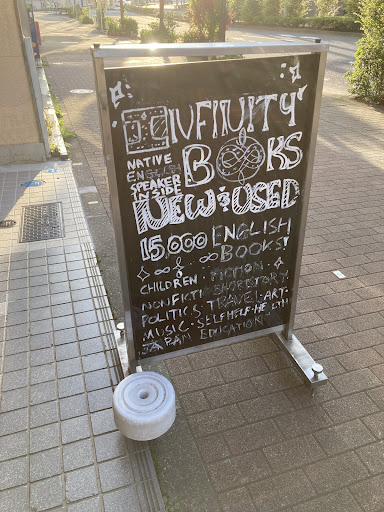 INFINITY
BOOKS
NATIVE
ENGLISH
SPEAKER
INSIDE
NEW & USED
15,000 ENGLISH
BOOKS!
CHILDREN · FICTION ·
NONFICTION SHORT STORY
POLITICS · TRAVEL · ART ·
MUSIC · SELF HELP · HEALTH
JAPAN EDUCATION